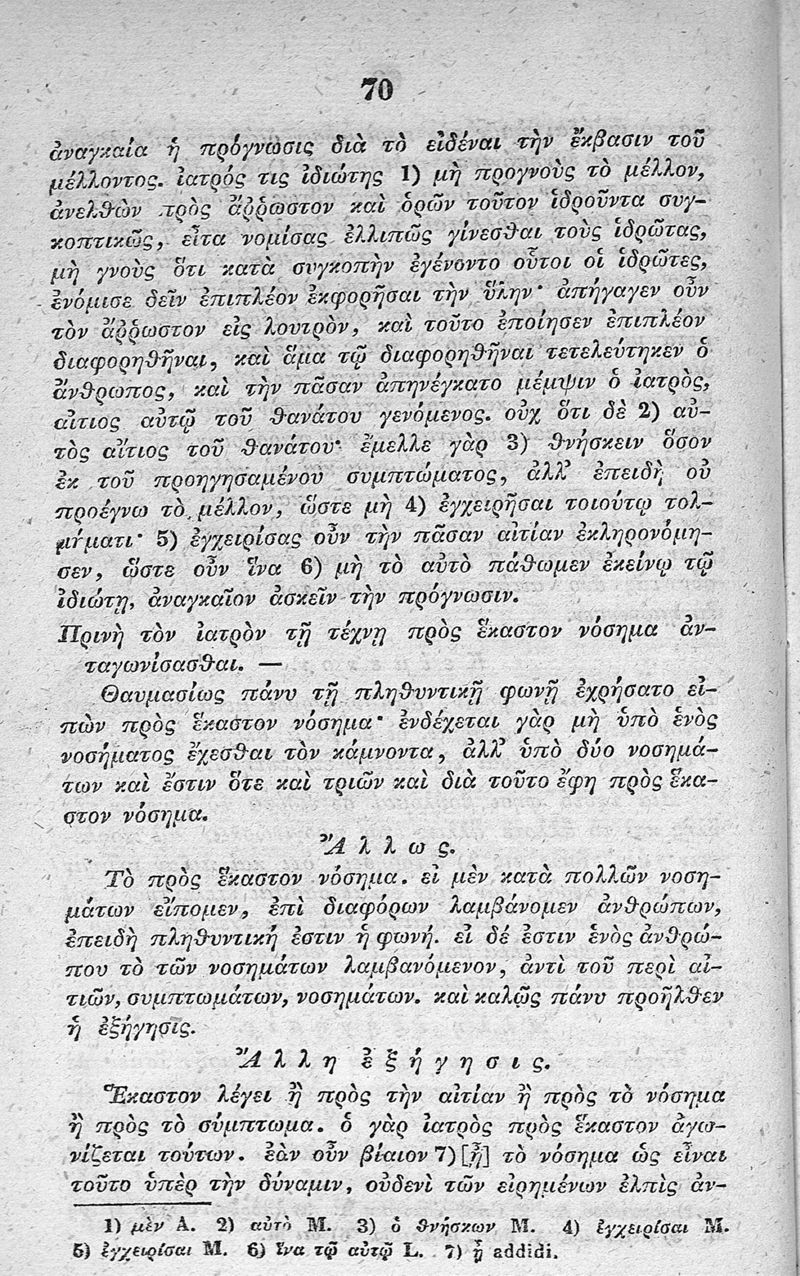 70
ἀναγκαία ἡ πρόγνωσις διὰ τὸ εἰδέναι τὴν ἔκβασιν τοῦ
μέλλοντος. ἰατρός τις ἰδιώτης 1) μὴ προγνοὺς τὸ μέλλον,
ἀνελθὼν πρὸς ἄῤῥωστον καὶ ὁρῶν τοῦτον ἱδροῦντα συγ-
κοπτικῶς, εἶτα νομίσας ἐλλιπῶς γίνεσθαι τοὺς ἱδρῶτας,
μὴ γνοὺς ὅτι κατὰ συγκοπὴν ἐγένοντο οὗτοι οἱ ἱδρῶτες,
ἐνόμισε δεῖν ἐπιπλέον ἐκφορῆσαι τὴν ὕλην· ἀπήγαγεν οὖν
τὸν ἄῤῥωστον εἰς λουτρὸν, καὶ τοῦτο ἐποίησεν ἐπιπλέον
διαφορηθῆναι, καὶ ἅμα τῷ διαφορηθῆναι τετελεύτηκεν ὁ
ἄνθρωπος, καὶ τὴν πᾶσαν ἀπηνέγκατο μέμψιν ὁ ἰατρὸς,
αἴτιος αὐτῷ τοῦ θανάτου γενόμενος. οὐχ ὅτι δὲ 2) αὐ-
τὸς αἴτιος τοῦ θανάτου· ἔμελλε γὰρ 3) θνήσκειν ὅσον
ἐκ τοῦ προηγησαμένου συμπτώματος, ἀλλ᾽ ἐπειδὴ οὐ
προέγνω τὸ μέλλον, ὥστε μὴ 4) ἐγχειρῆσαι τοιούτῳ τολ-
μήματι· 5) ἐγχειρίσας οὖν τὴν πᾶσαν αἰτίαν ἐκληρονόμη-
σεν, ὥστε οὖν ἵνα 6) μὴ τὸ αὐτὸ πάθωμεν ἐκείνῳ τῷ
ἰδιώτῃ, ἀναγκαῖον ἀσκεῖν τὴν πρόγνωσιν.
Πρινὴ τὸν ἰατρὸν τῇ τέχνῃ πρὸς ἕκαστον νόσημα ἀν-
ταγωνίσασθαι. —
Θαυμασίως πάνυ τῇ πληθυντικῇ φωνῇ ἐχρήσατο εἰ-
πὼν πρὸς ἕκαστον νόσημα· ἐνδέχεται γὰρ μὴ ὑπὸ ἑνὸς
νοσήματος ἔχεσθαι τὸν κάμνοντα, ἀλλ᾽ ὑπὸ δύο νοσημά-
των καὶ ἔστιν ὅτε καὶ τριῶν καὶ διὰ τοῦτο ἔφη πρὸς ἕκα-
στον νόσημα.
Ἄλλως.
Τὸ πρὸς ἕκαστον νόσημα. εἰ μὲν κατὰ πολλῶν νοση-
μάτων εἴπομεν, ἐπὶ διαφόρων λαμβάνομεν ἀνθρώπων,
ἐπειδὴ πληθυντική ἐστιν ἡ φωνή. εἰ δέ ἐστιν ἑνὸς ἀνθρώ-
που τὸ τῶν νοσημάτων λαμβανόμενον, ἀντὶ τοῦ περὶ αἰ-
τιῶν, συμπτωμάτων, νοσημάτων. καὶ καλῶς πάνυ προῆλθεν
ἡ ἐξήγησις.
Ἄλλη ἐξήγησις.
Ἕκαστον λέγει ἢ πρὸς τὴν αἰτίαν ἢ πρὸς τὸ νόσημα
ἢ πρὸς τὸ σύμπτωμα. ὁ γὰρ ἰατρὸς πρὸς ἕκαστον ἀγω-
νίζεται τούτων. ἐὰν οὖν βίαιον 7) [ᾖ] τὸ νόσημα ὡς εἶναι
τοῦτο ὑπὲρ τὴν δύναμιν, οὐδενὶ τῶν εἰρημένων ἐλπὶς ἀν-
1) μὲν A. 2) αὐτὸ M. 3) ὁ θνήσκων M. 4) ἐγχειρίσαι M.
5) ἐγχειρίσαι M. 6) ἵνα τῷ αὐτῷ L. 7) ᾖ addidi.